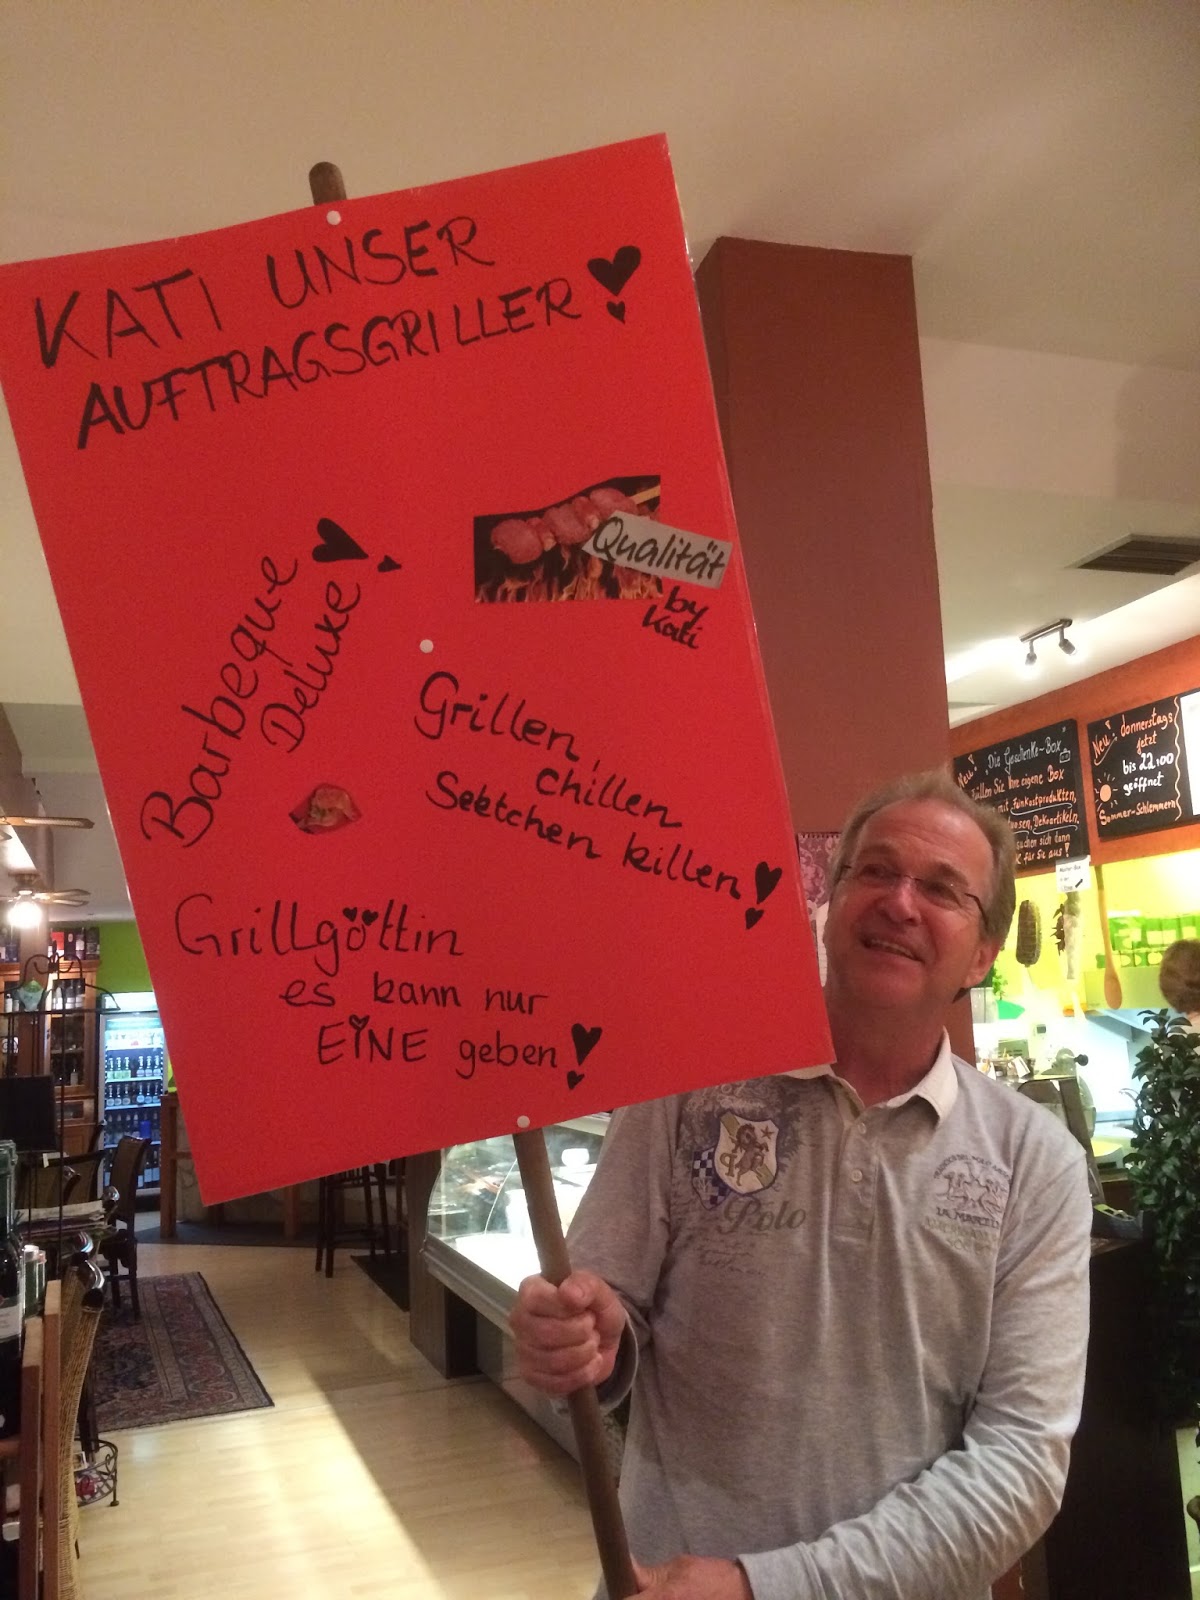 KATI UNSER
AUFTRAGSGRILLER
Qualität
by
Kati
Barbeque
Deluxe
Grillen,
chillen
Sektchen killen
Grillgöttin
es kann nur
EINE geben
Neu!
"Die Geschenke-Box"
Füllen Sie Ihre eigene Box
mit Feinkostprodukten,
Dekoartikeln.
suchen sich dann
für Sie aus!
Neu! donnerstags
jetzt
bis 22,00
geöffnet
Sommer-Schlemmern
Polo
LA MARTINA